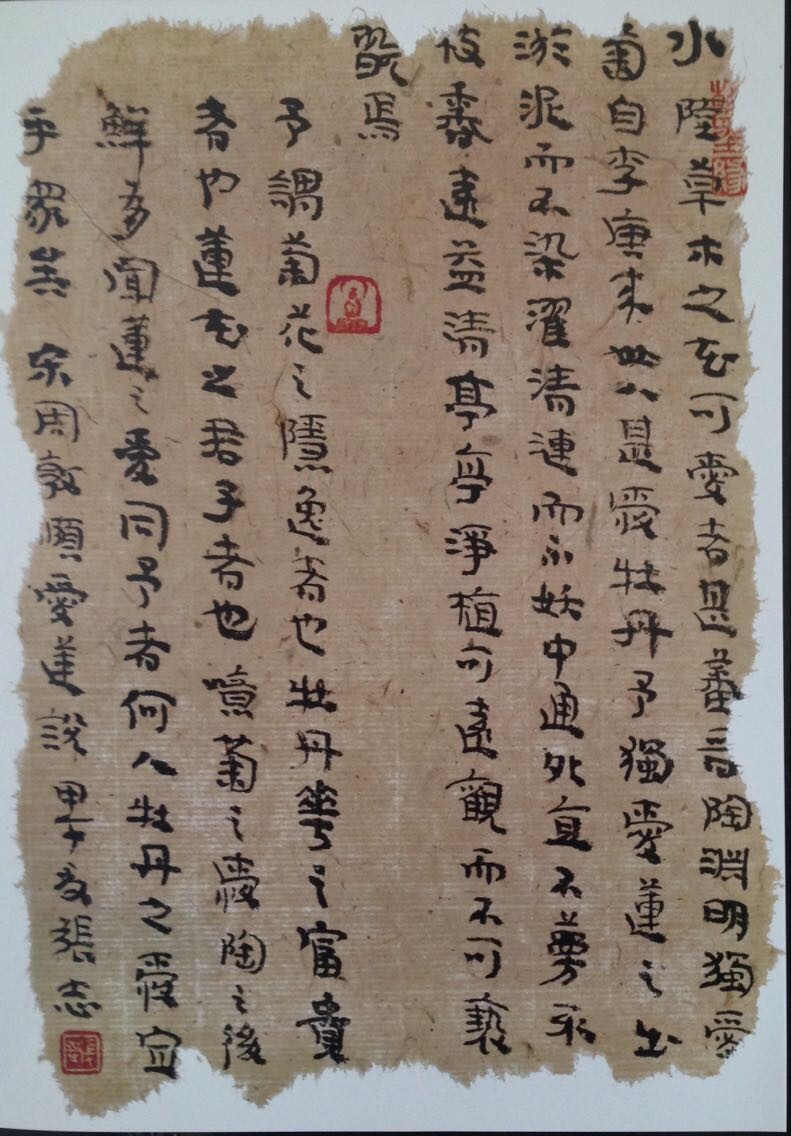 水陸草木之花可愛者甚蕃晉陶淵明獨愛
菊自李唐來世人甚愛牡丹予獨愛蓮之出
淤泥而不染濯清漣而不妖中通外直不蔓不
枝香遠益清亭亭淨植可遠觀而不可褻
翫焉
予謂菊花之隱逸者也牡丹華之富貴
者也蓮花之君子者也噫菊之愛陶之後
鮮有聞蓮之愛同予者何人牡丹之愛宜
乎眾矣 宋周敦頤愛蓮說 甲午夏張志